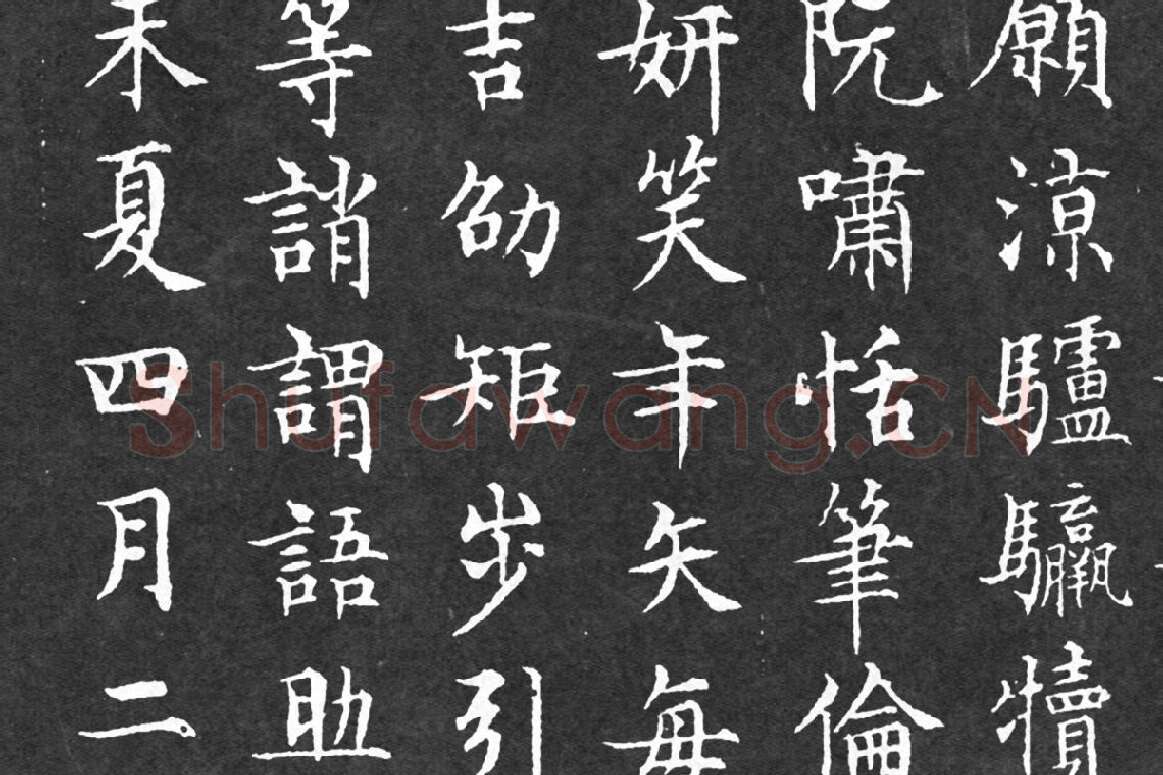 願涼驢騾犢
阮嘯恬筆倫
妍笑年矢每
吉劭矩步引
等誚謂語助
末夏四月二
Shufawang.CN